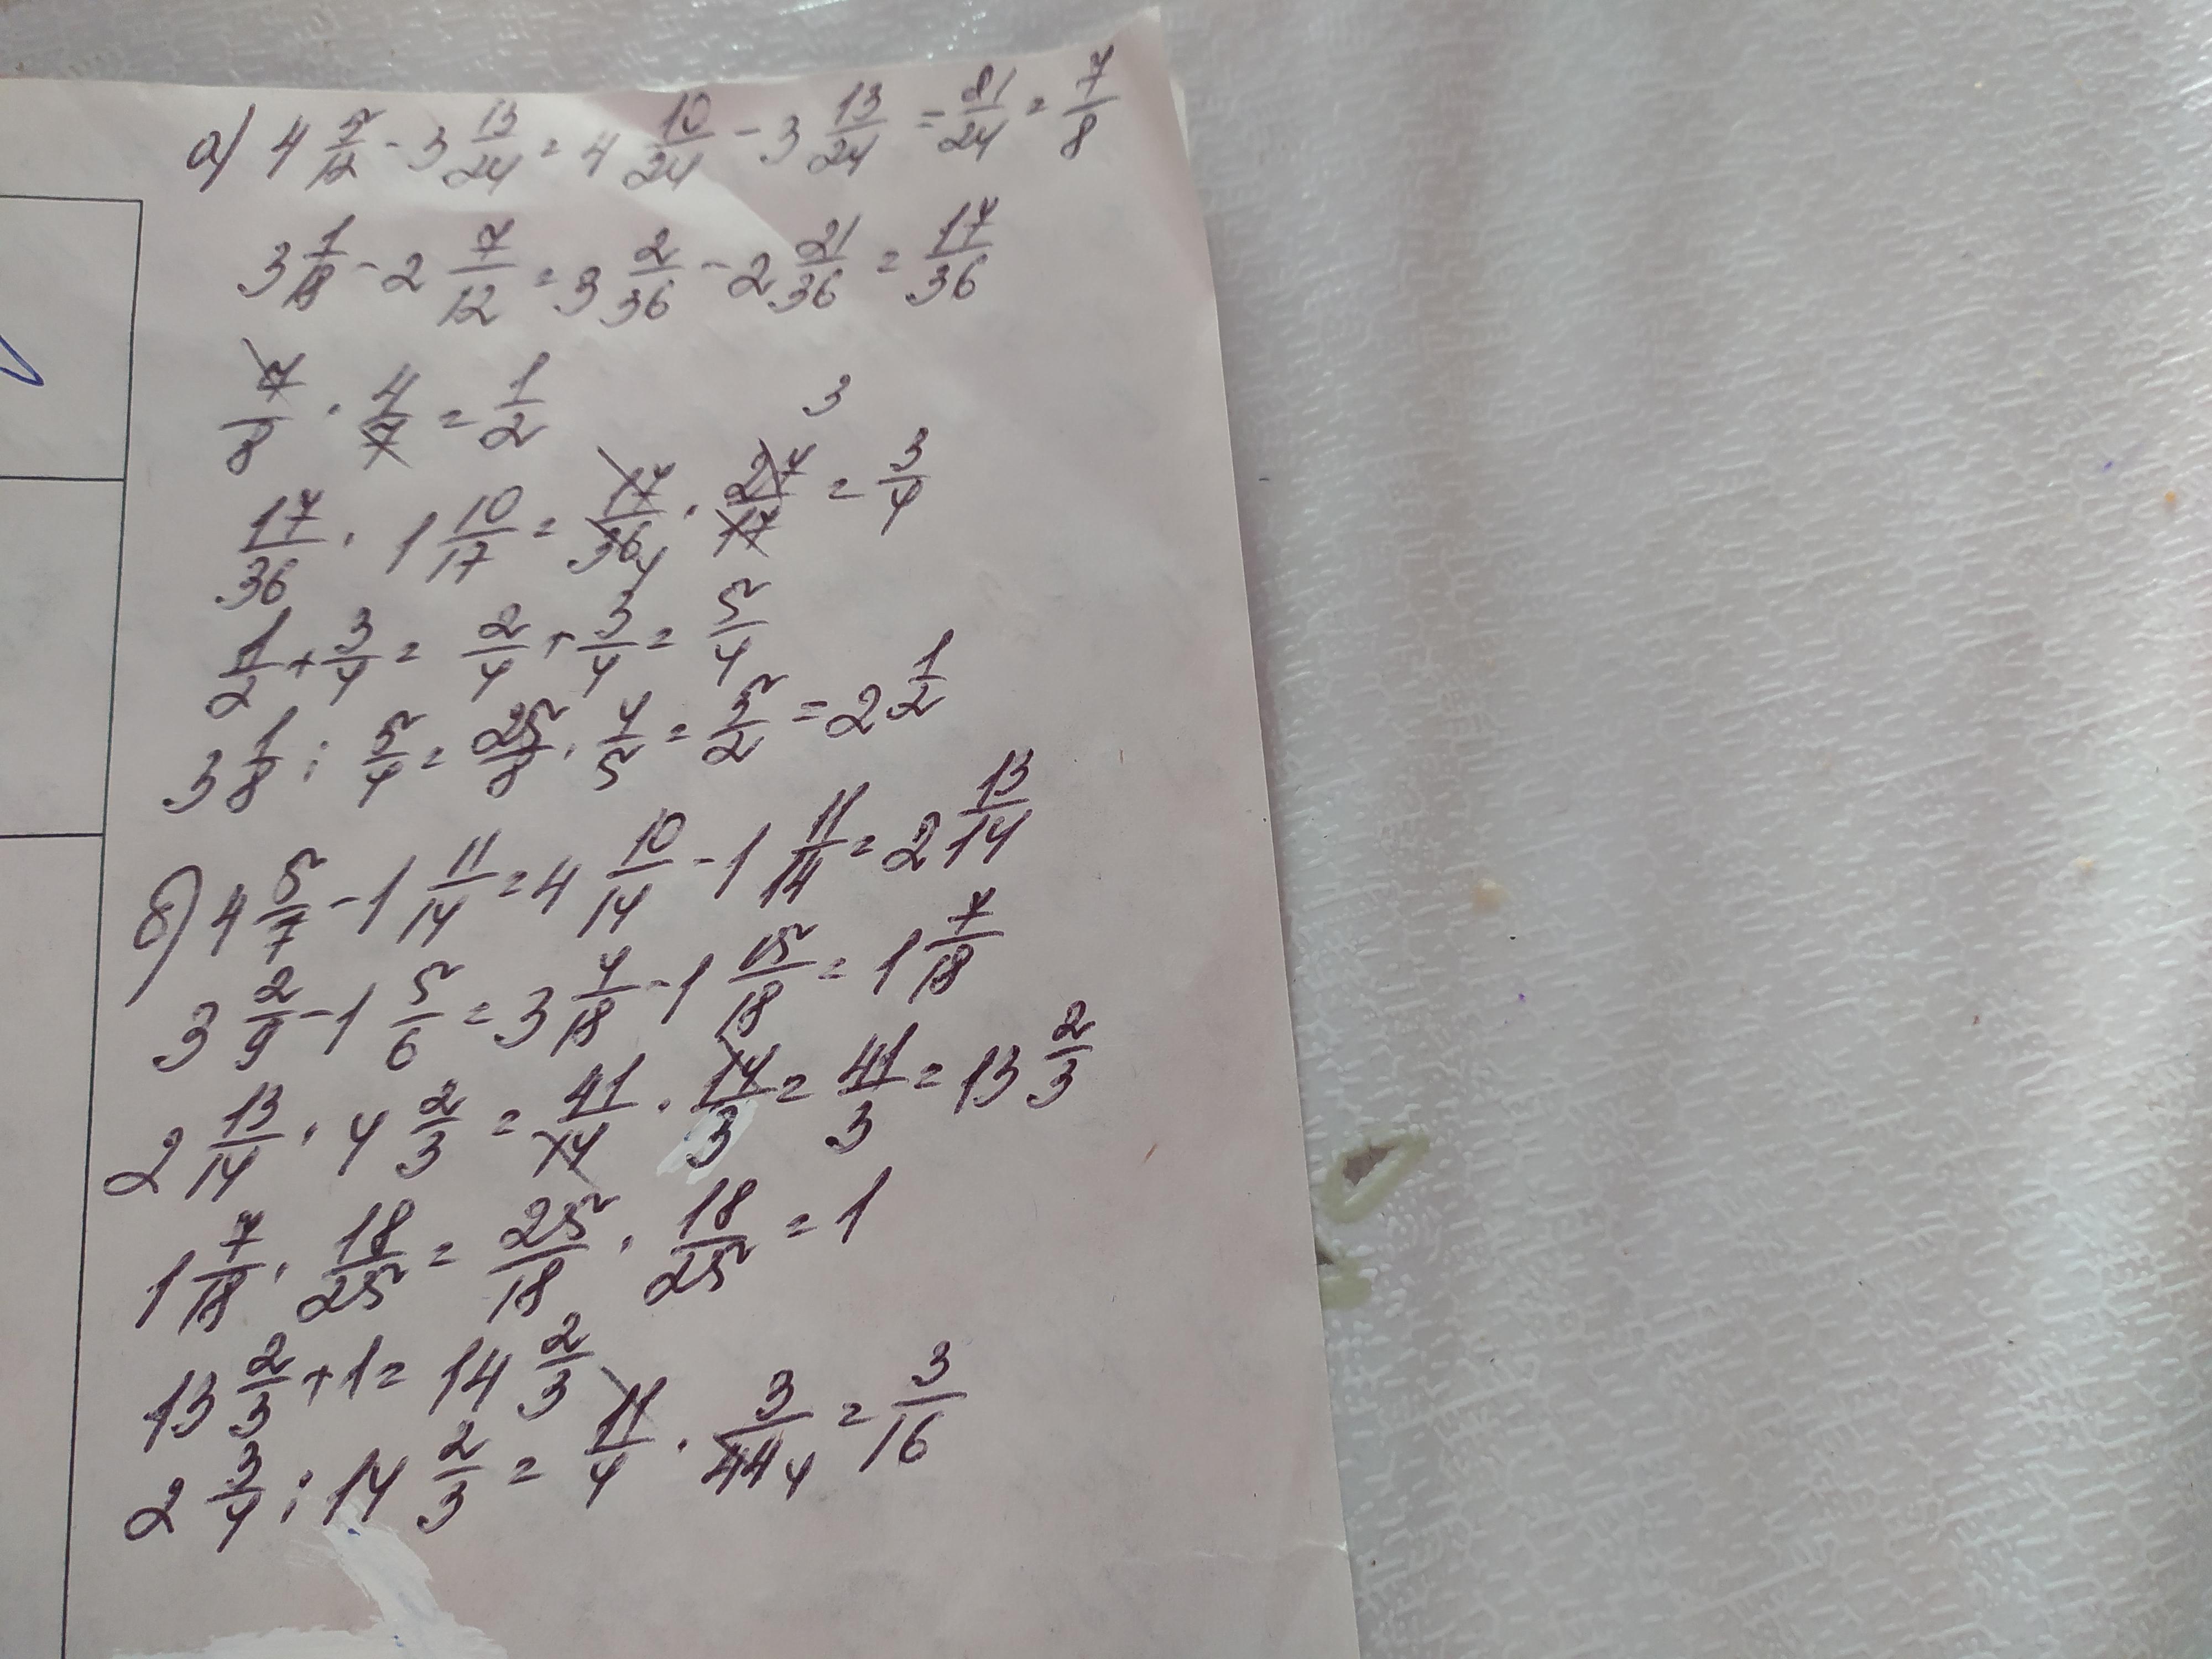 а) 4 5/12 - 3 13/24 = 4 10/24 - 3 13/24 = 21/24 = 7/8
3 1/18 - 2 7/12 = 3 2/36 - 2 21/36 = 17/36
7/8 · 4/7 = 1/2
3
17/36 · 1 10/17 = 17/36 4 · 27/17 = 3/4
1/2 + 3/4 = 2/4 + 3/4 = 5/4
3 1/8 : 5/4 = 25/8 · 4/5 = 5/2 = 2 1/2
б) 4 5/7 - 1 11/14 = 4 10/14 - 1 11/14 = 2 13/14
3 2/9 - 1 5/6 = 3 4/18 - 1 15/18 = 1 7/18
2 13/14 · 4 2/3 = 41/14 · 14/3 = 41/3 = 13 2/3
1 7/18 · 18/25 = 25/18 · 18/25 = 1
13 2/3 + 1 = 14 2/3
2 3/4 : 14 2/3 = 11/4 · 3/44 4 = 3/16